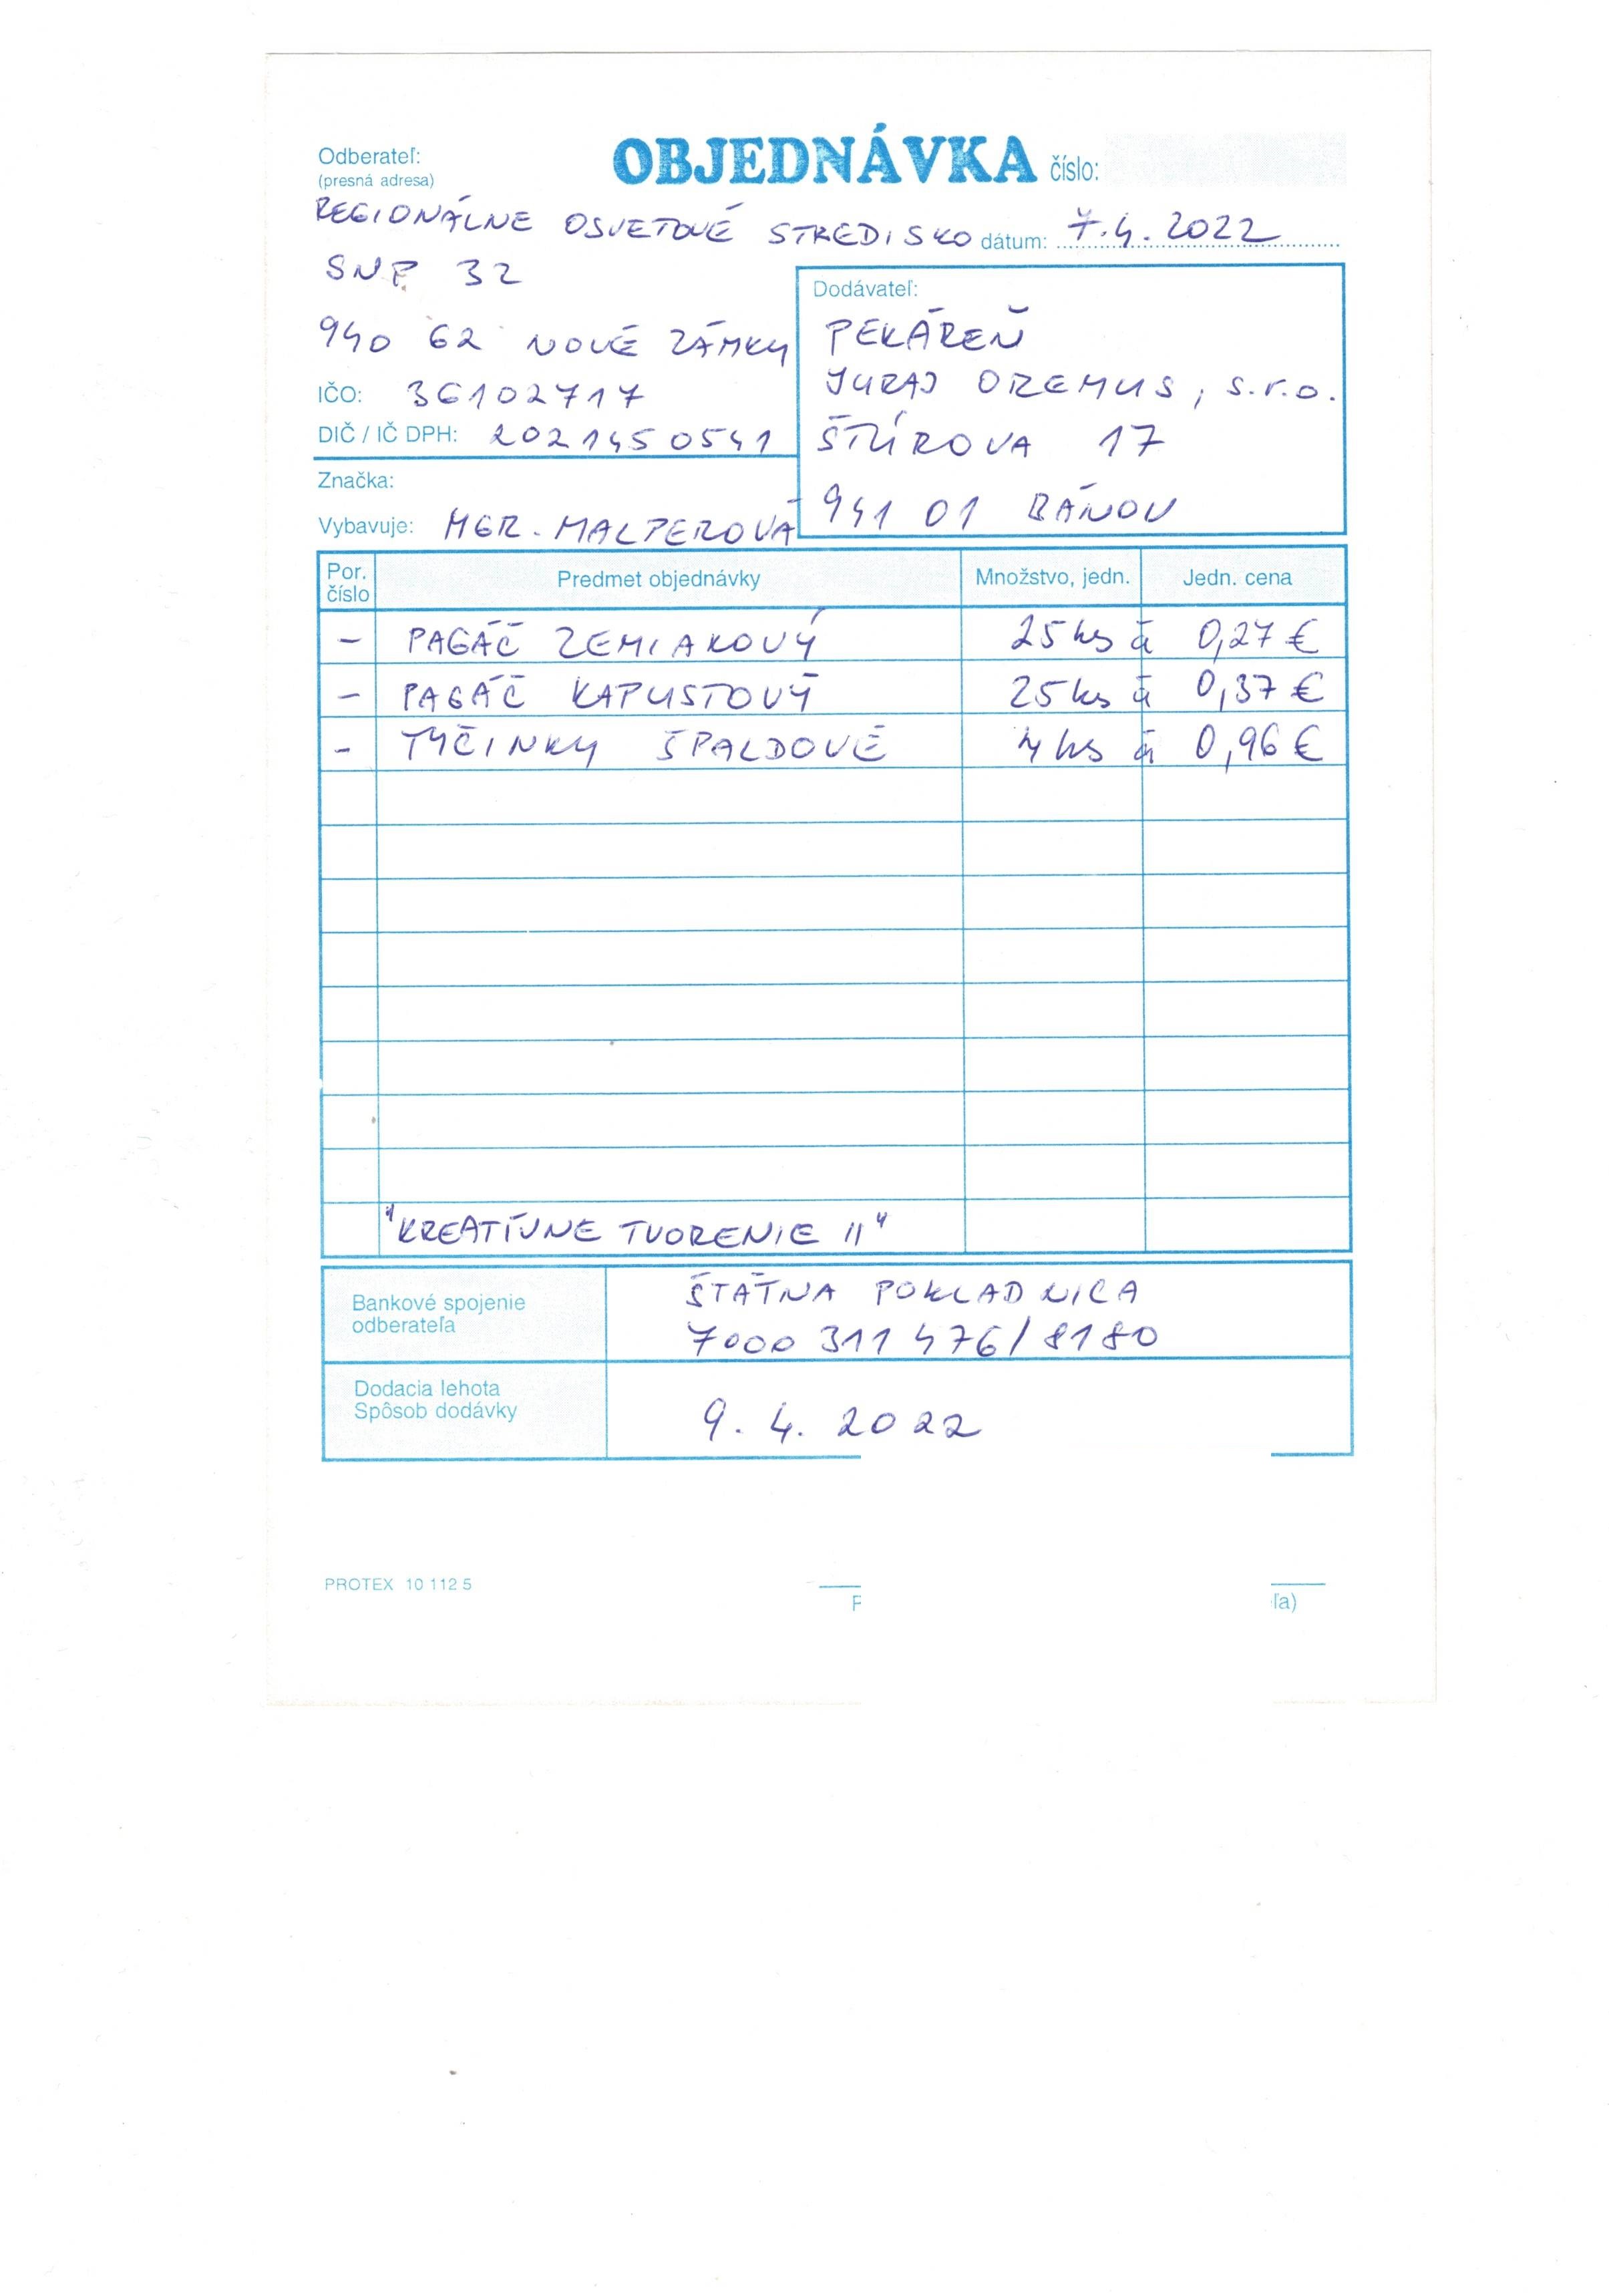 Odberateľ:
(presná adresa)
OBJEDNÁVKA číslo:
REGIONÁLNE OSVETOVÉ STREDISKO dátum: 7.4.2022
SNP 32
940 62 NOVÉ ZÁMKY
IČO: 36102717
DIČ / IČ DPH: 2021450541
Značka:
Vybavuje: MGR. MALPEROVÁ
Dodávateľ:
PEKÁREŇ
JURAJ OREMUS, s.r.o.
ŠTÚROVA 17
941 01 BÁNOV
Por. číslo Predmet objednávky Množstvo, jedn. Jedn. cena
- PAGÁČ ZEMIAKOVÝ 25 ks á 0,27 €
- PAGÁČ KAPUSTOVÝ 25 ks á 0,37 €
- TYČINKY ŠPALDOVÉ 4 ks á 0,96 €
"KREATÍVNE TVORENIE II"
Bankové spojenie
odberateľa
ŠTÁTNA POKLADNICA
7000 311 476/8180
Dodacia lehota
Spôsob dodávky
9. 4. 2022
PROTEX 10 112 5